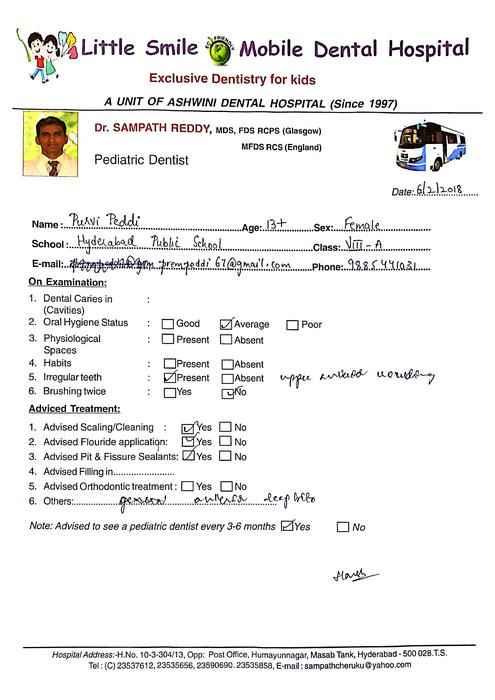 Little Smile ECO FRIENDLY Mobile Dental Hospital
Exclusive Dentistry for kids
A UNIT OF ASHWINI DENTAL HOSPITAL (Since 1997)
Dr. SAMPATH REDDY, MDS, FDS RCPS (Glasgow)
MFDS RCS (England)
Pediatric Dentist
Date: 6/2/2018
Name: Purvi Peddi Age: 13+ Sex: Female
School: Hyderabad Public School Class: VIII - A
E-mail: prempeddi67@gmail.com Phone: 9885441031
On Examination:
1. Dental Caries in :
(Cavities)
2. Oral Hygiene Status : Good Average Poor
3. Physiological : Present Absent
Spaces
4. Habits : Present Absent
5. Irregular teeth : Present Absent upper anterior crowding
6. Brushing twice : Yes No
Adviced Treatment:
1. Advised Scaling/Cleaning : Yes No
2. Advised Flouride application: Yes No
3. Advised Pit & Fissure Sealants: Yes No
4. Advised Filling in....................
5. Advised Orthodontic treatment : Yes No
6. Others: anterior deep bite
Note: Advised to see a pediatric dentist every 3-6 months Yes No
Hospital Address:-H.No. 10-3-304/13, Opp: Post Office, Humayunnagar, Masab Tank, Hyderabad - 500 028.T.S.
Tel : (C) 23537612, 23535656, 23590690. 23535858, E-mail : sampathcheruku@yahoo.com